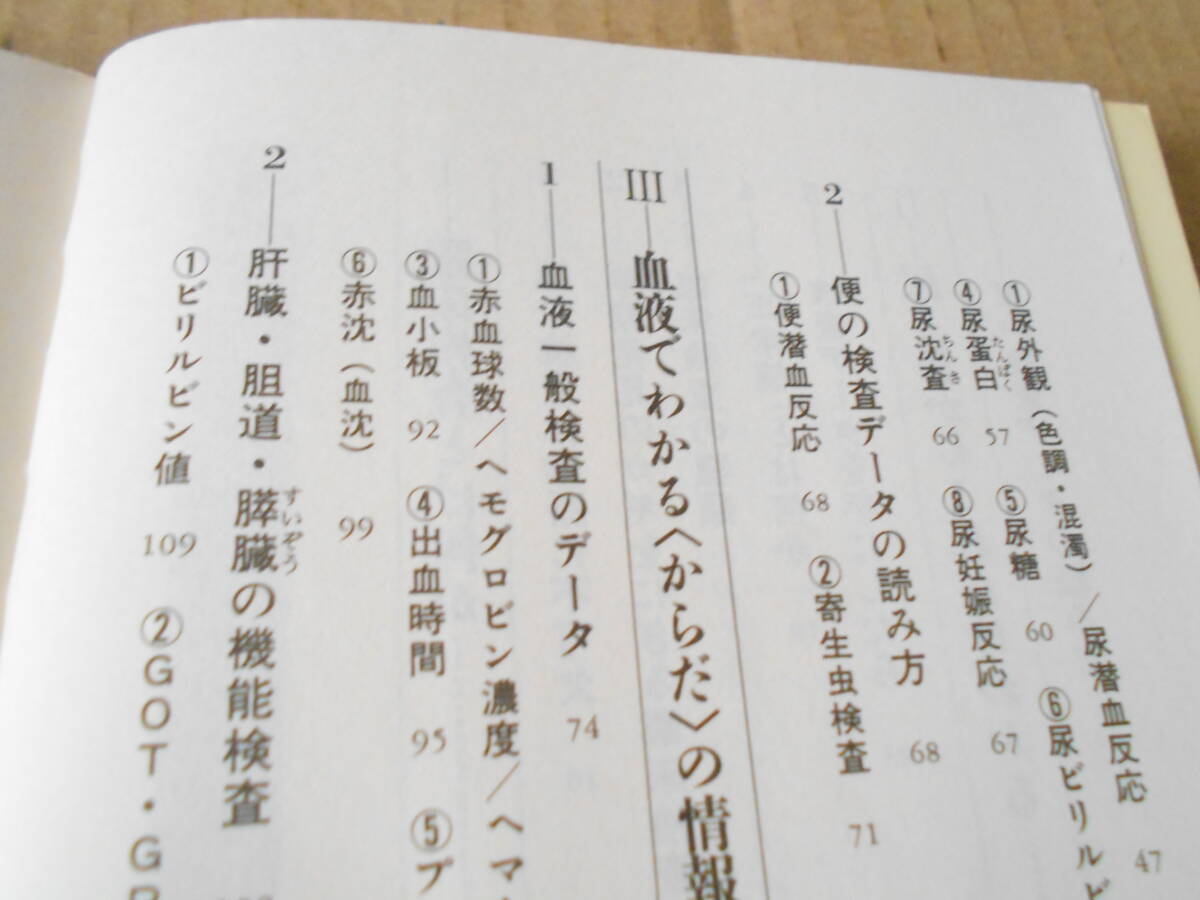 ①尿外観(色調・混濁)/尿潜血反応 47
④尿蛋白 57 ⑤尿糖 60 ⑥尿ビリルビ
たんぱく
⑦尿沈査 66 ⑧尿妊娠反応 67
ちんさ
2―便の検査データの読み方 68
①便潜血反応 68 ②寄生虫検査 71
III―血液でわかる〈からだ〉の情報
1―血液一般検査のデータ 74
①赤血球数/ヘモグロビン濃度/ヘマ
③血小板 92 ④出血時間 95 ⑤プ
⑥赤沈(血沈) 99
2―肝臓・胆道・膵臓の機能検査
すいぞう
①ビリルビン値 109 ②GOT・G